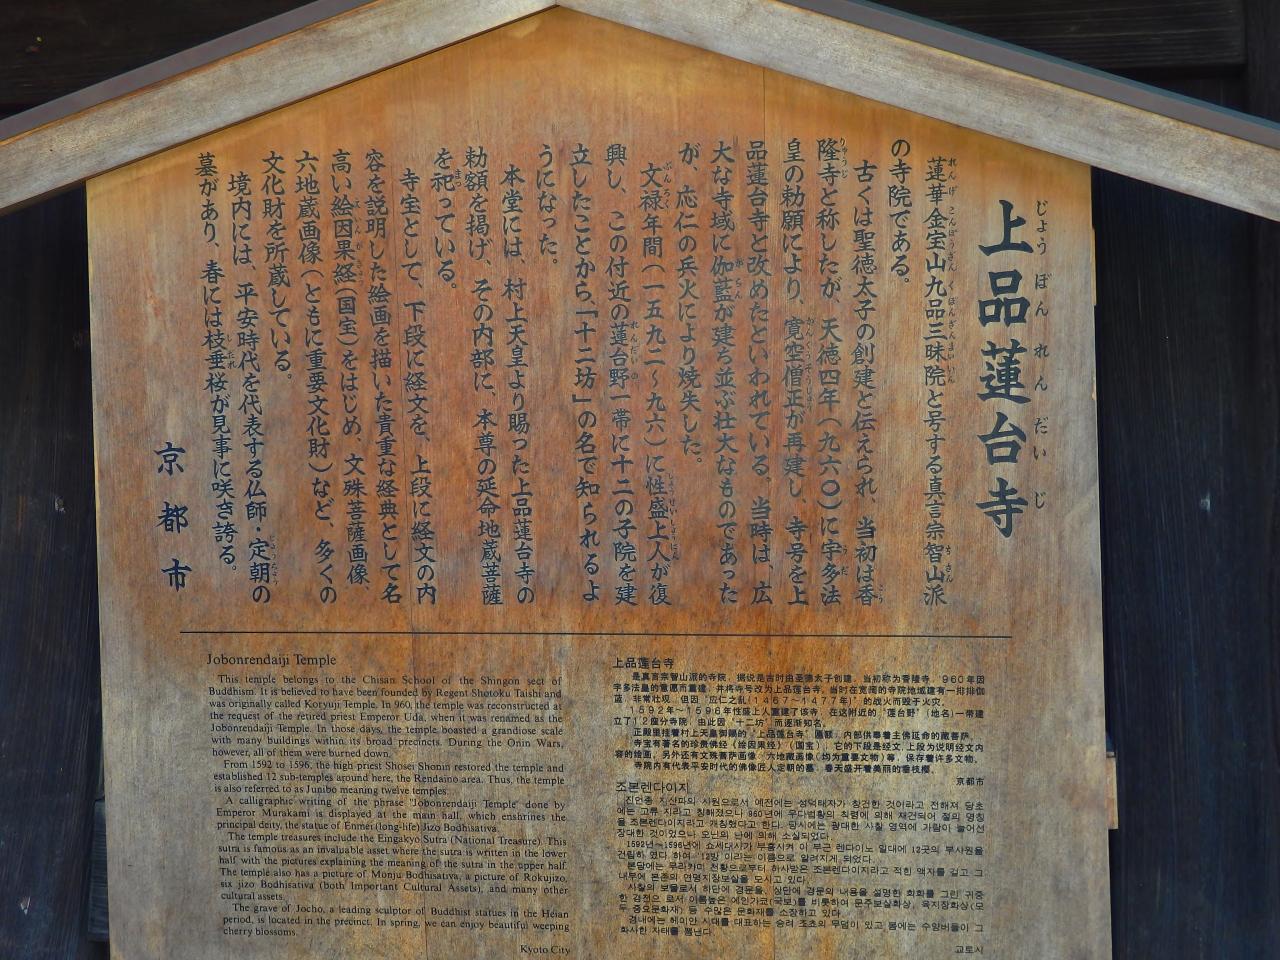 上品蓮台寺
じょうぼんれんだいじ
蓮華金宝山九品三昧院と号する真言宗智山派
の寺院である。
古くは聖徳太子の創建と伝えられ、当初は香
隆寺と称したが、天徳四年(九六〇)に宇多法
皇の勅願により、寛空僧正が再建し、寺号を上
品蓮台寺と改めたといわれている。当時は、広
大な寺域に伽藍が建ち並ぶ壮大なものであった
が、応仁の兵火により焼失した。
文禄年間(一五九二~九六)に性盛上人が復
興し、この付近の蓮台野一帯に十二の子院を建
立したことから、「十二坊」の名で知られるよ
うになった。
本堂には、村上天皇より賜った上品蓮台寺の
勅額を掲げ、その内部に、本尊の延命地蔵菩薩
を祀っている。
寺宝として、下段に経文を、上段に経文の内
容を説明した絵画を描いた貴重な経典として名
高い絵因果経(国宝)をはじめ、文殊菩薩画像、
六地蔵画像(ともに重要文化財)など、多くの
文化財を所蔵している。
境内には、平安時代を代表する仏師・定朝の
墓があり、春には枝垂桜が見事に咲き誇る。
京都市
Jobonrendaiji Temple
This temple belongs to the Chisan School of the Shingon sect of
Buddhism. It is believed to have been founded by Regent Shotoku Taishi and
was originally called Koryuji Temple. In 960, the temple was reconstructed at
the request of the retired priest Emperor Uda, when it was renamed as the
Jobonrendaiji Temple. In those days, the temple boasted a grandiose scale
with many buildings within its broad precincts. During the Onin Wars,
however, all of them were burned down.
From 1592 to 1596, the high priest Shosei Shonin restored the temple and
established 12 sub-temples around here, the Rendaino area. Thus, the temple
is also referred to as Junibo meaning twelve temples.
A calligraphic writing of the phrase "Jobonrendaiji Temple" done by
Emperor Murakami is displayed at the main hall, which enshrines the
principal deity, the statue of Enmei (long-life) Jizo Bodhisativa.
The temple treasures include the Eingakyo Sutra (National Treasure). This
sutra is famous as an invaluable asset where the sutra is written in the lower
half with the pictures explaining the meaning of the sutra in the upper half.
The temple also has a picture of Monju Bodhisatva, a picture of Rokujizo,
six jizo Bodhisativa (both Important Cultural Assets), and many other
cultural assets.
The grave of Jocho, a leading sculptor of Buddhist statues in the Heian
period, is located in the precinct. In spring, we can enjoy beautiful weeping
cherry blossoms.
Kyoto City
上品莲台寺
是真言宗智山派的寺院。据说是古时由圣德太子创建，当初称为香隆寺。960年因
宇多法皇的意愿而重建，并将寺号改为上品莲台寺。当时在宽阔的寺院地域建有一排排伽
蓝，非常壮观，但因"应仁之乱(1467~1477年)"的战火而毁于火灾。
1592年~1596年性盛上人重建了该寺，在这附近的"莲台野"(地名)一带建
立了12座分寺院，由此因"十二坊"而逐渐知名。
正殿里挂着村上天皇御赐的"上品莲台寺"匾额，内部供奉着主佛延命的藏菩萨。
寺宝有著名的珍贵佛经《绘因果经》(国宝)，它的下段是经文，上段为说明经文内
容的绘画，另外还有文殊菩萨画像、六地藏画像(均为重要文物)等，保存着许多文物。
寺院内有代表平安时代的佛像匠人定朝的墓，春天盛开着美丽的垂枝樱。
京都市
조본렌다이지
진언종 지산파의 사원으로서 예전에는 성덕태자가 창건한 것이라고 전해져 당초
에는 고류 지라고 칭해졌으나 960년에 우다법황의 칙령에 의해 재건되어 절의 명칭
을 조본렌다이지라고 개칭했다고 한다. 당시에는 광대한 사찰 영역에 가람이 늘어선
장대한 것이었으나 오닌의 난에 의해 소실되었다.
1592년~1596년에 쇼세대사가 부흥시켜 이 부근 렌다이노 일대에 12곳의 부사원을
건립하였다 하여 "12방"이라는 이름으로 알려지게 되었다.
본당에는 무라카미 천황으로부터 하사받은 조본렌다이지라고 적힌 액자를 걸고 그
내부에 본존의 연명지장보살을 모시고 있다.
사찰의 보물로서 하단에 경문을, 상단에 경문의 내용을 설명한 회화를 그린 귀중
한 경전으로서 이름높은 에인가쿄(국보)를 비롯하여 문주보살화상, 육지장화상(모
두 중요문화재) 등 수많은 문화재를 소장하고 있다.
경내에는 헤이안 시대를 대표하는 승려 조초의 무덤이 있고 봄에는 수양버들이 그
화사한 자태를 뽐낸다.
교토시